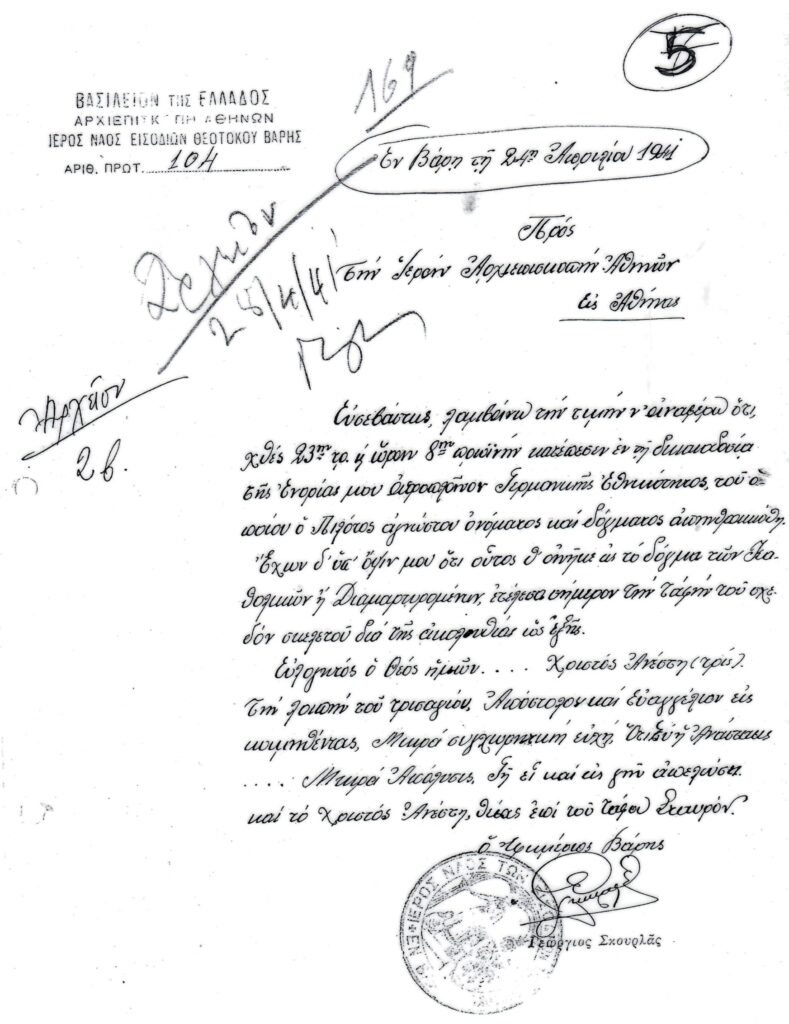 5
169
ΒΑΣΙΛΕΙΟΝ ΤΗΣ ΕΛΛΑΔΟΣ
ΑΡΧΙΕΠΙΣΚΟΠΗ ΑΘΗΝΩΝ
ΙΕΡΟΣ ΝΑΟΣ ΕΙΣΟΔΙΩΝ ΘΕΟΤΟΚΟΥ ΒΑΡΗΣ
ΑΡΙΘ. ΠΡΩΤ. 104
Ἐν Βάρῃ τῇ 24ῃ Ἀπριλίου 1941
Πρὸς
Τὴν Ἱερὰν Ἀρχιεπισκοπὴν Ἀθηνῶν
Εἰς Ἀθήνας
25/4/41
Ἀρχεῖον
2β.
Εὐσεβάστως, λαμβάνω τὴν τιμὴν ν' ἀναφέρω ὅτι,
χθὲς 23ην τρ. ἡ ὥραν 8ην πρωϊνὴν κατέπεσεν ἐν τῇ δικαιοδοσίᾳ
τῆς Ἐνορίας μου ἀεροπλάνον Γερμανικῆς Ἐθνικότητος, τοῦ ὁ-
ποίου ὁ Πιλότος ἀγνώστου ὀνόματος καὶ δόγματος ἀπηνθρακώθη.
Ἔχων δ' ὑπ' ὄψιν μου ὅτι οὗτος θ' ἀνῆκε εἰς τὸ δόγμα τῶν Κα-
θολικῶν ἢ Διαμαρτυρομένων, ἐτέλεσα σήμερον τὴν ταφὴν τοῦ σχε-
δὸν σκελετοῦ διὰ τῆς ἀκολουθίας ὡς ἑξῆς.
Εὐλογητὸς ὁ Θεὸς ἡμῶν.... Χριστὸς Ἀνέστη (τρίς).
Τὴν λοιπὴν τοῦ τρισαγίου, Ἀπόστολον καὶ Εὐαγγέλιον εἰς
κοιμηθέντας, Μικρὰ συγχωρητικὴ εὐχή, Ὅτι Σὺ ἡ Ἀνάστασις
.... Μικρὰ Ἀπόλυσις, Γῆ εἶ καὶ εἰς γῆν ἀπελεύσει
καὶ τὸ Χριστὸς Ἀνέστη, θέσας ἐπὶ τοῦ τάφου Σταυρόν.
ὁ Ἐφημέριος Βάρης
ΙΕΡΟΣ ΝΑΟΣ ΤΩΝ
Γεώργιος Σκουρλᾶς